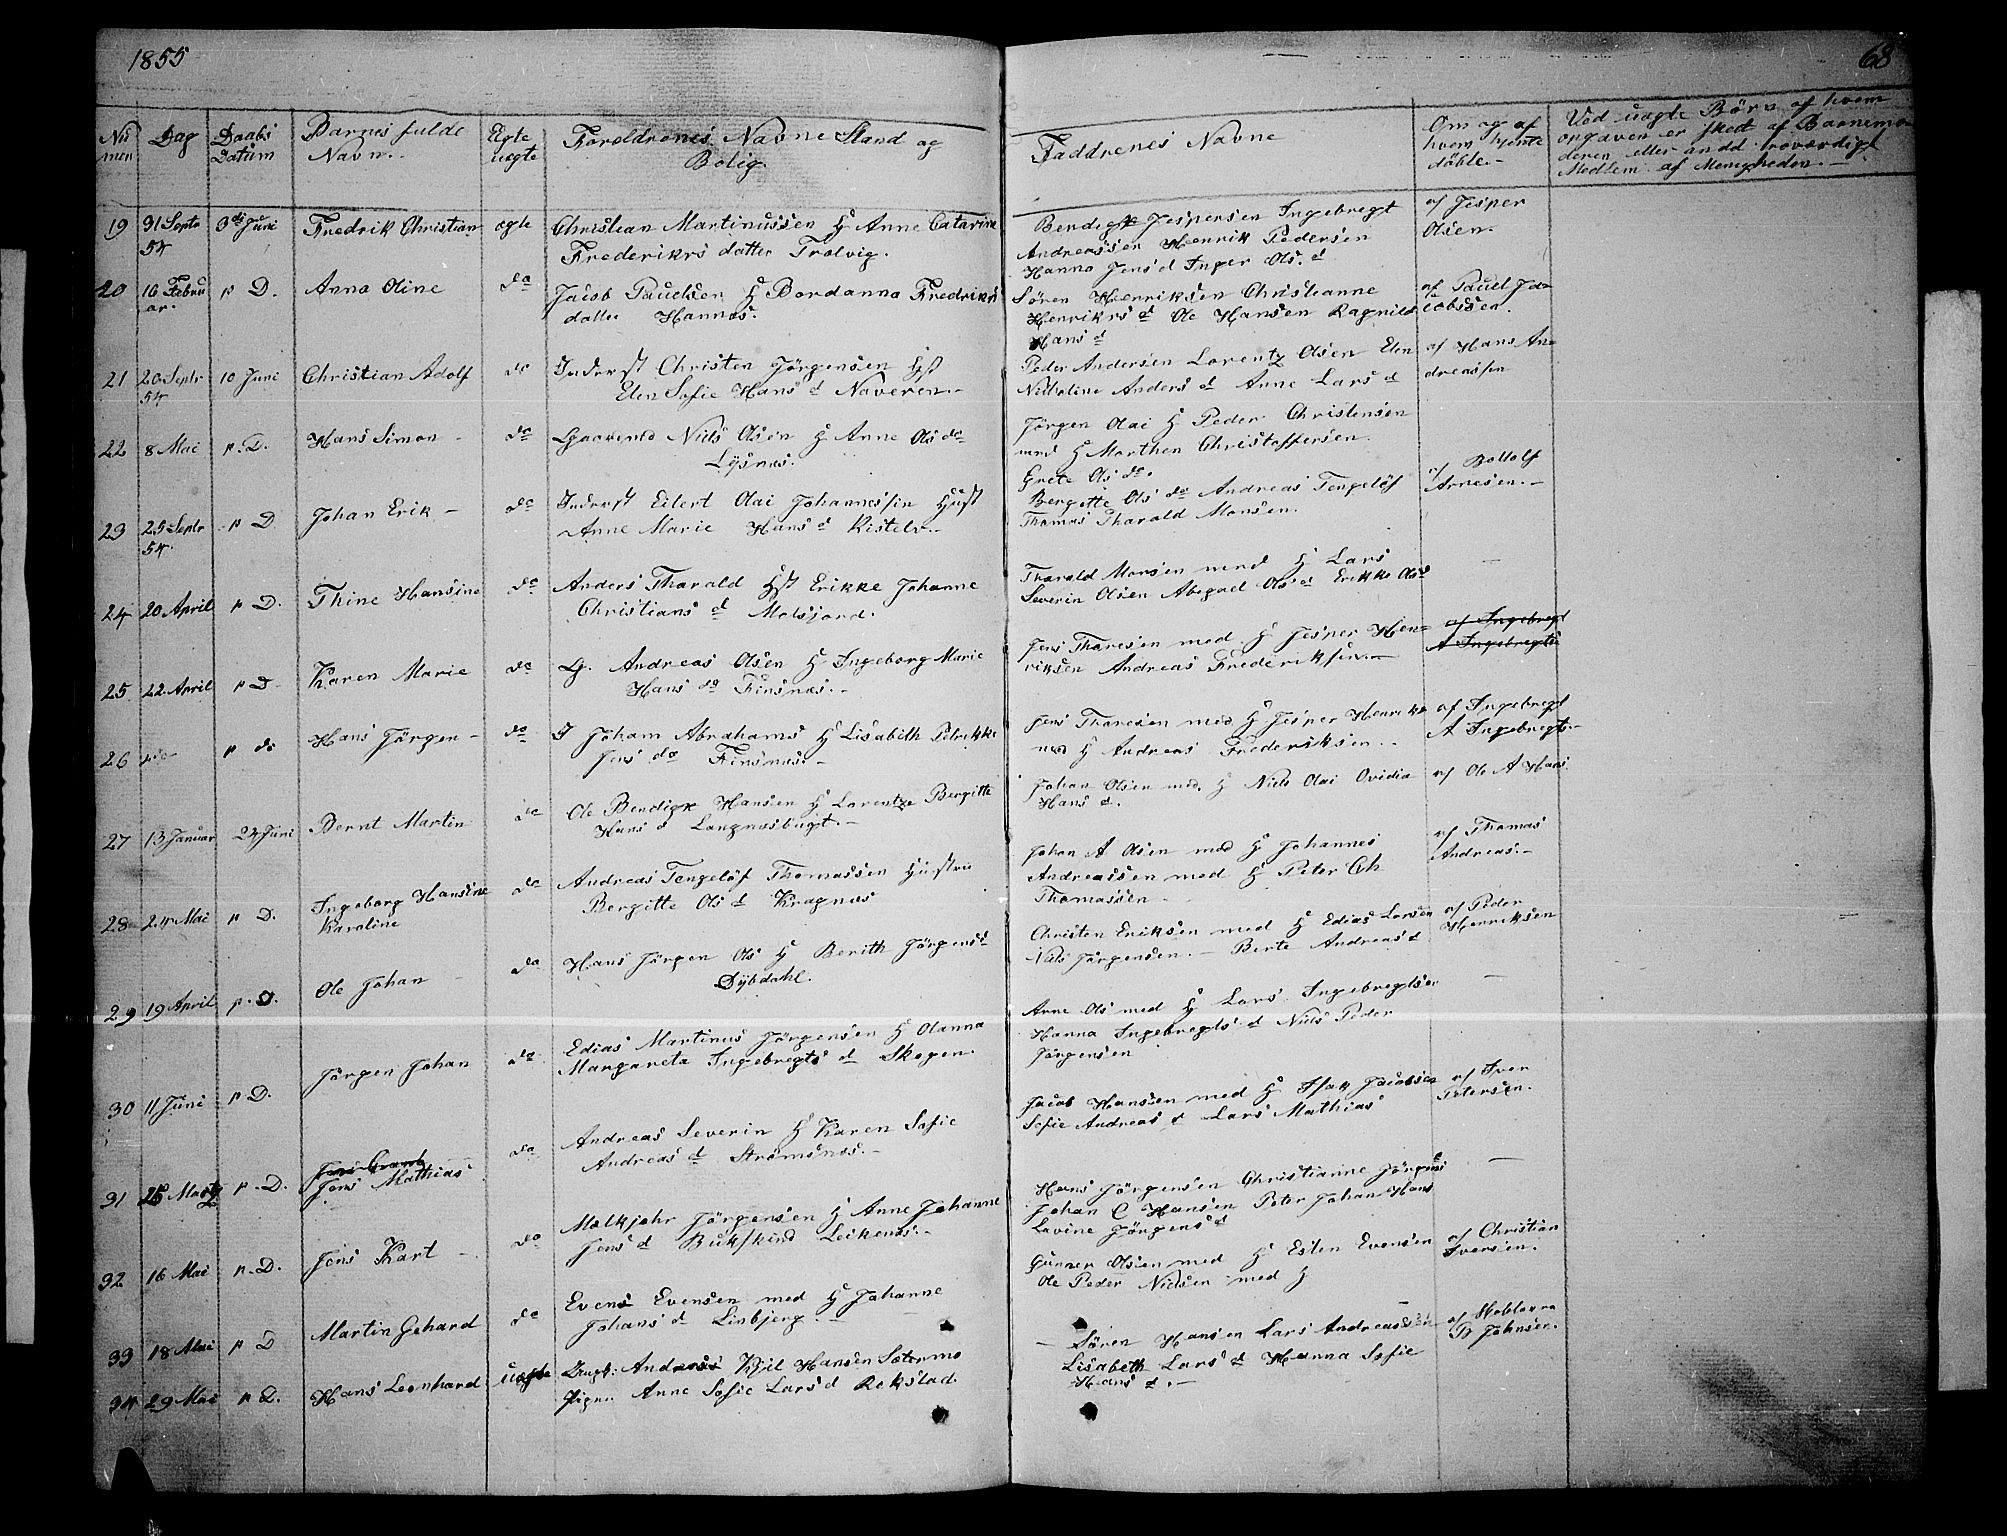 1855
68
Nu
mer
Dag
Daabs
Datum
Barnes fulde
Navn.-
Egte
uegte
Foreldrenes Navne Stand og
Bolig.
Faddrenes Navne
Om og af
hvem hjemme
döbte.-
Ved uegte Börn af hvem
opgaven er skedt af Barnemo-
deren eller andd. troværdigt
Medlem af Menigheden.-
19 31 Septr
54
3die Juni
Fredrik Christian
egte
Christian Martinussen H Anne Catarine
Frederikrs datter Trolvig.
Bendigt Jespersen Ingebregt
Andreassen Henrik Pedersen
Hanna Jens d Inger Ols. d
af Jesper
Olsen.
20 16 Febru
ar.
p D.
Anna Oline
do
Jacob Paulsen H Bordanna Fredrikrs
datter Hannes.
Sören Henriksen Christianne
Henrikrs d Ole Hansen Ragnild
Hans d
af Pauel Ja-
cobssen.
21 20 Septr
54
10 Juni
Christian Adolf
do
Inderst Christen Jörgensen Hst
Elen Sofie Hans d Naveren.-
Peder Andersen Lorentz Olsen Elen
Nicoline Anders d Anne Lars d
af Hans An-
dreassen
22 8 Mai p. D.
Hans Simon -
do
Niels Olsen H Anne Ols do
Lysnes.
Jörgen Olai H Peder Christensen
med H Morthen Christoffersen.
Grete Ols do.
23 25 Septr
54.
p D
Johan Erik -
do
Inderst Eilert Olai Johannessen Hust
Anne Marie Hans d Kistelv.-
Bergette Ols do Andreas Tengelöf
Thomas Tharald Monsen.
af Bottolf
Arnesen.-
24 20 April p D.
Thine Hansine
do
Anders Tharald Hst Erikke Johanne
Christians d Molsjord.
Tharald Monsen med H Lars
Severin Olsen Abegael Ols d Erikke Olsd
-
25 22 April p D
Karen Marie
do
Lg. Andreas Olsen H Ingeborg Marie
Hans do Finsnes.-
Jens Thoresen med H Jesper Hen-
riksen Andreas Frederiksen.-
af Ingebregt
A Ingebregts
26 do p do
Hans Jörgen -
do
I Joham Abrahams H Lisabeth Petrikke
Jens do Finsnes.-
Jens Thoresen med H Jesper Henriks
med H Andreas Frederiksen.-
af Ingebregt
A Ingebregts-
27 13 Januar 24 Juni
Bernt Martin
do
Ole Bendigk Hansen H Lorentze Bergitte
Hans d Langnesbugt.-
Johan Olsen med H Niels Olai Ovidia
Hans d.
af Ole A Hans.
28 24 Mai p D.
Ingeborg Hansine
Karoline
do
Andreas Tengelöf Thomassen Hustru
Bergitte Ols d Kragnes
Johan A Olsen med H Johannes
Andreassen med H Peter Ch
Thomassen -
af Thomas
Andreas.-
29 19 April p. D.
Ole Johan
do
Hans Jörgen Ols H Berith Jörgens d
Dybdahl.
Christen Eriksen med H Edias Larsen
Niels Jörgensen.- Berte Andreas d
af Peder
Henriksen
30 11 Juni p D.
Jörgen Johan
do
Edias Martinus Jörgensen H Olanna
Margareta Ingebregts d Skogen.
Arne Ols med H Lars Ingebregtsen
Hanna Ingebregts d Niels Peder
Jörgensen
-
31 25 Marts p. D.
Jens Mathias
do
Andreas Severin H Karen Sofie
Andreas d Strömsnes.-
Jacob Hansen med H Isak Jacobsen
Sofie Andreas d Lars Mathias
af Iver
Petersen.
32 16 Mai p. D.
Jens Kart -
do
Melkjohr Jörgensen H Anne Johanne
Jens d Bukskind Leikenes.-
Hans Jörgensen Christianne Jörgens d
Johan C Hansen Peter Johan Hans
Lavine Jörgens d
-
33 18 Mai p D
Martin Gehard
do
Evens Evensen med H Johanne
Johans d Linbjerg.-
Gunner Olsen med H Esten Evensen
Ole Peder Nielsen med H
af Christian
Iversen.
34 29 Mai p D.
Hans Leonhard
uegte
Ungk. Andreas Kjil Hansen Sætermo
Pigen Anne Sofie Lars d Rekstad.
- Sören Hansen Lars Andreassen
Lisabeth Lars d Hanna Sofie
Hans d.-
af
P Johnsen.